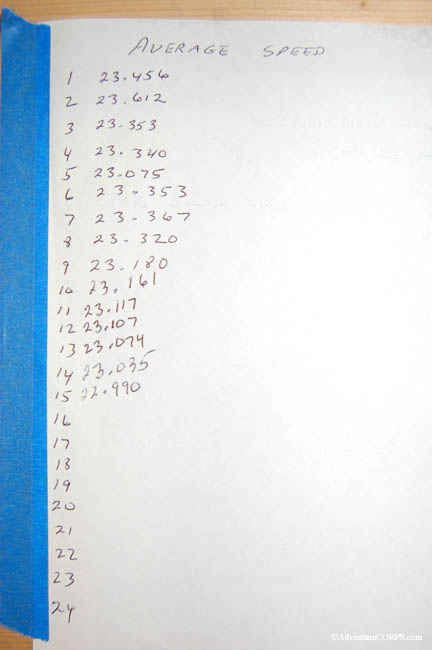 AVERAGE SPEED
1 23.456
2 23.612
3 23.353
4 23.340
5 23.075
6 23.353
7 23.367
8 23.320
9 23.180
10 23.161
11 23.117
12 23.107
13 23.074
14 23.035
15 22.990
16
17
18
19
20
21
22
23
24
©AdventureCORPS.com